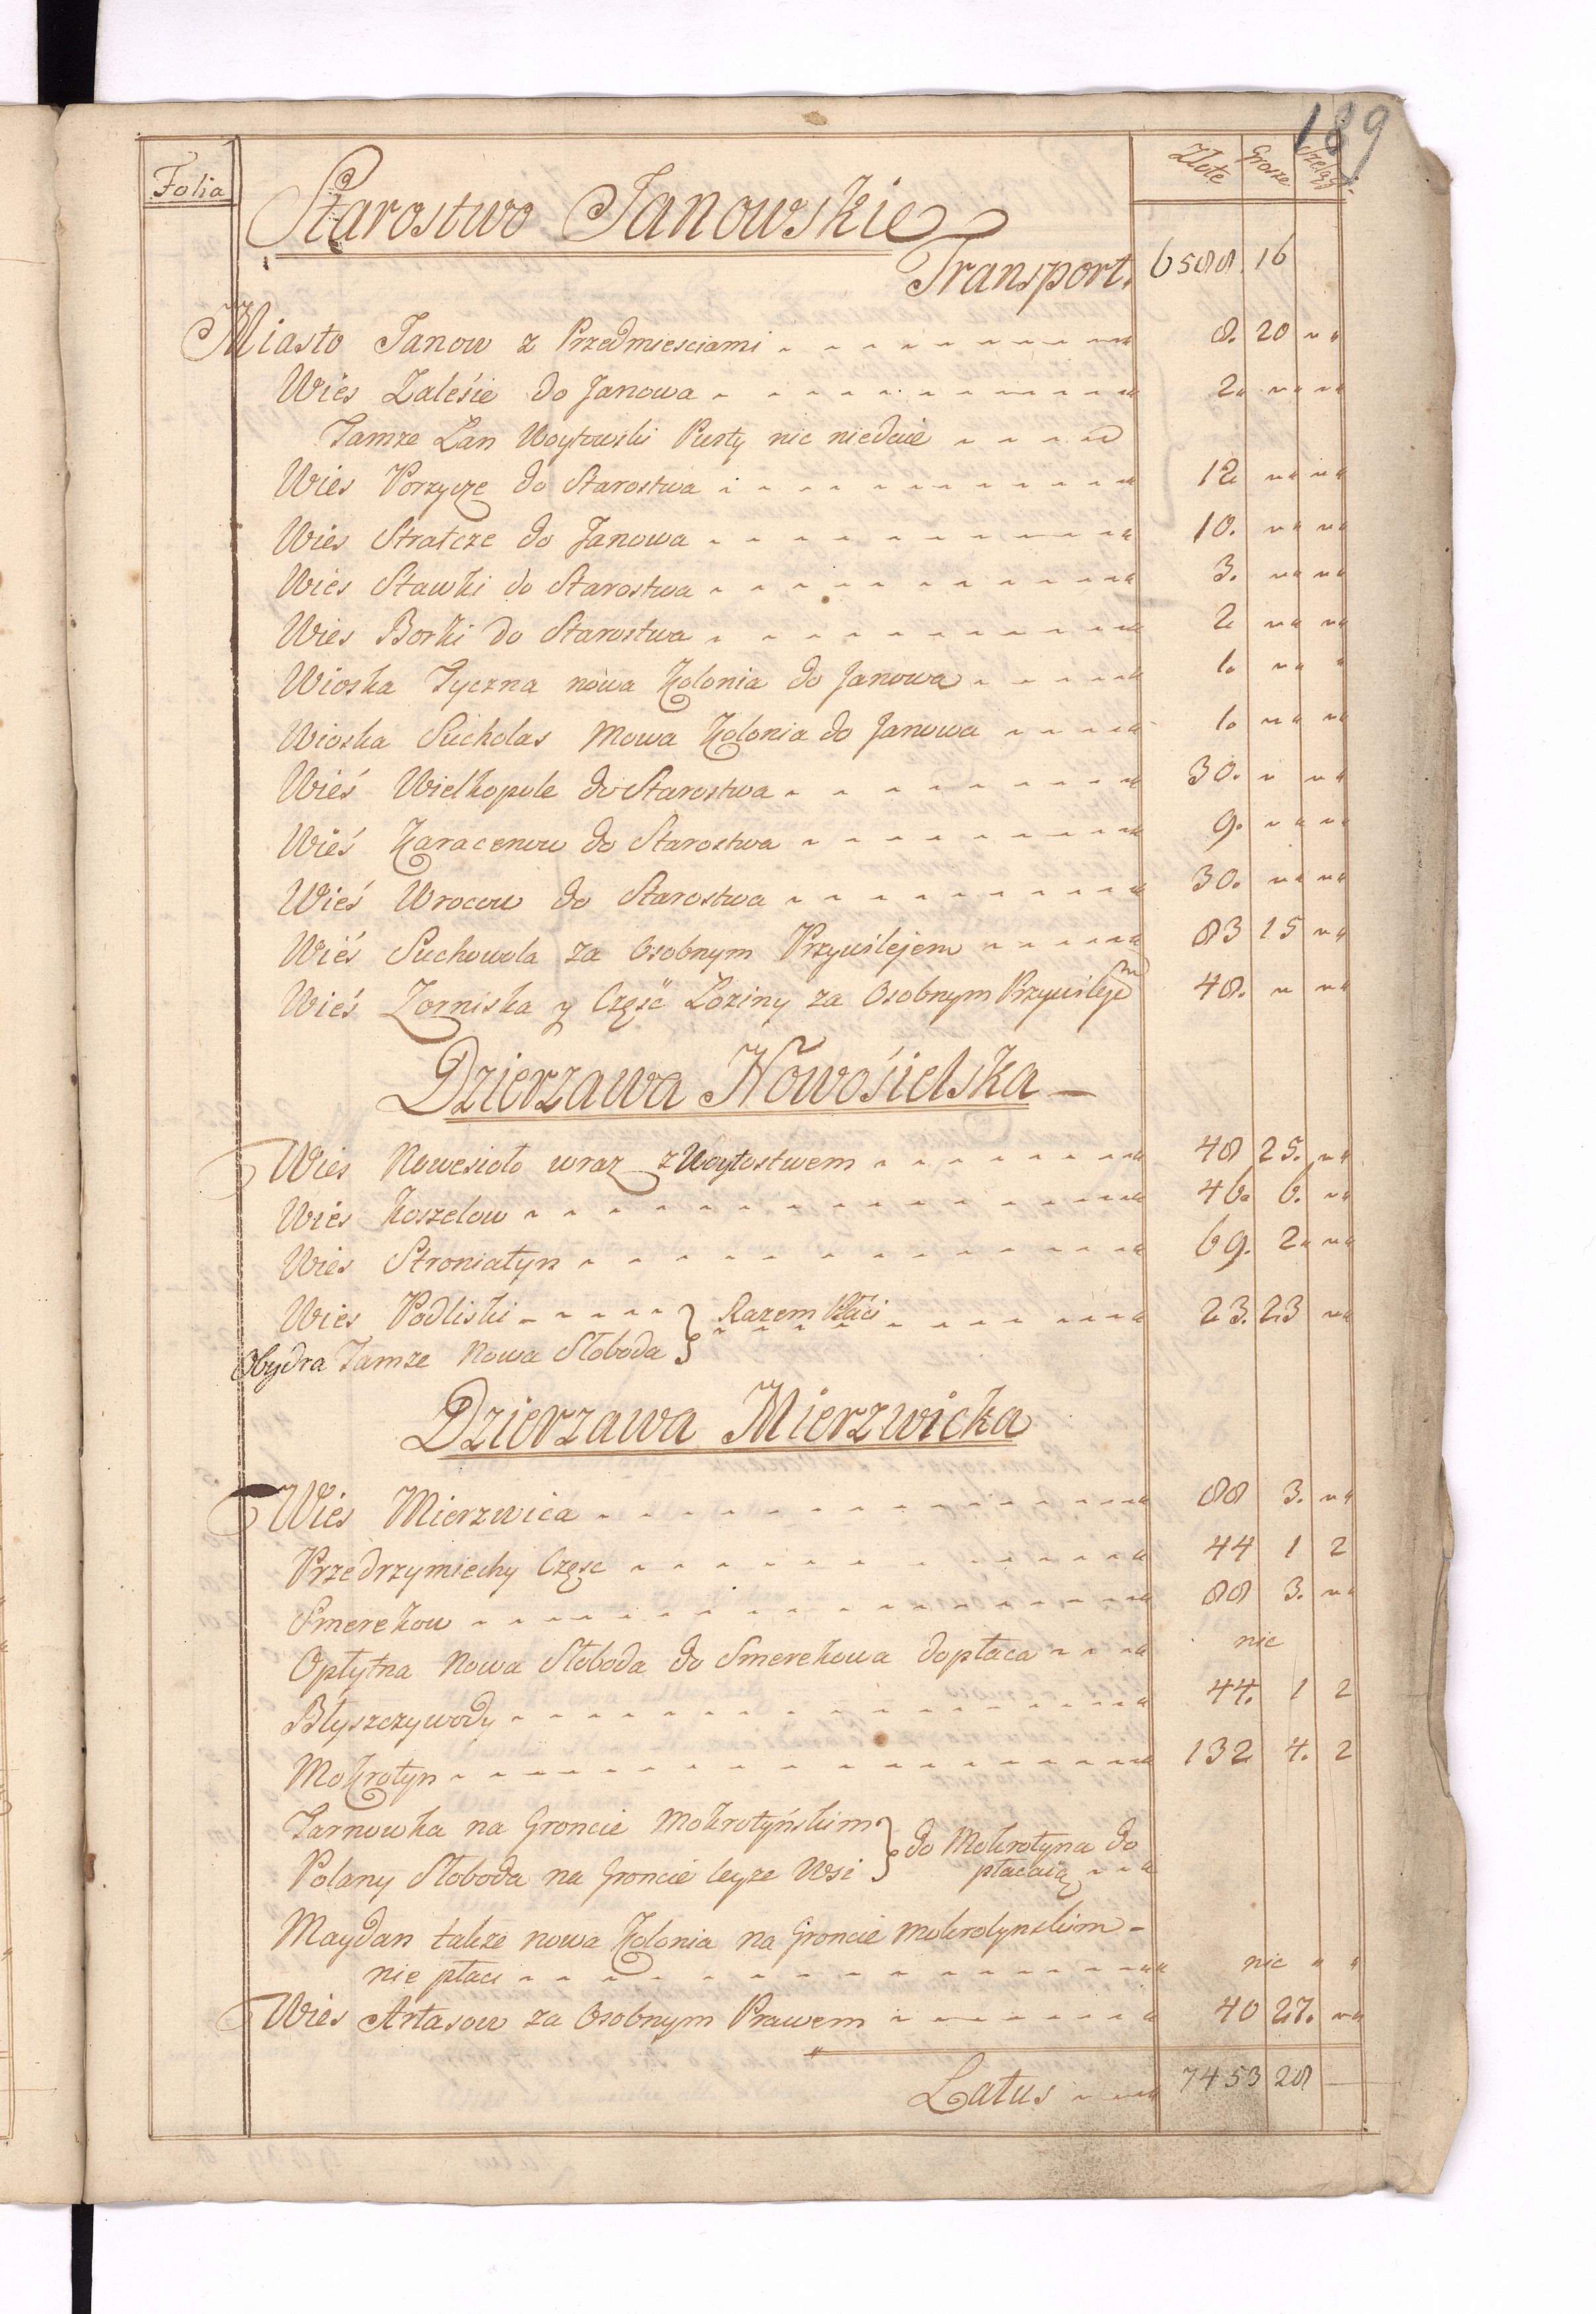 189
Folia
Złote Grosze Szelągi
Starostwo Janowskie
Transport. 6588. 16
Miasto Janow z Przedmiesciami 8. 20 " "
Wies Zaleśie do Janowa 2 " " " "
Tamze Łan Woytowski Pusty nic niedaie
Wies Porzycze do Starostwa 12 " " " "
Wies Stratcze do Janowa 10. " " " "
Wies Stawki do Starostwa 3. " " " "
Wies Borki do Starostwa 2 " " " "
Wioska Tyczna nowa Kolonia do Janowa 1. " " "
Wioska Sucholas Nowa Kolonia do Janowa 1. " " " "
Wieś Wielkopole do Starostwa 30. " " "
Wieś Karacenow do Starostwa 9. " " " "
Wieś Wrocow do Starostwa 30. " " " "
Wieś Suchowola za Osobnym Przywilejem 83 15 " "
Wieś Zorniska y Część Łoziny za Osobnym Przywilejem 48. " " "
Dzierzawa Nowosielska —
Wies Nowesioło wraz z Woytostwem 48 25. " "
Wies Koszelow 46. 6. " "
Wies Stroniatyn 69. 2 " "
Wies Podliski } Razem Płaci 23. 23 " "
Obydra Tamze Nowa Słoboda }
Dzierzawa Mierzwicka
Wies Mierzwica 88 3. " "
Przedrzymiechy Częsc 44 1 2
Smerekow 88 3. " "
Opłytna Nowa Słoboda do Smerekowa dopłaca nic
Błyszczywody 44. 1 2
Mokrotyn 132 4. 2
Tarnowka na Groncie Mokrotyńskim } do Mokrotyna do
Polany Słoboda na Groncie teyze Wsi } płacaią
Maydan takze nowa Kolonia na Groncie Mokrotynskim -
nie płaci nic " "
Wies Artasow za Osobnym Prawem 40 27. " "
Latus 7453 28 —